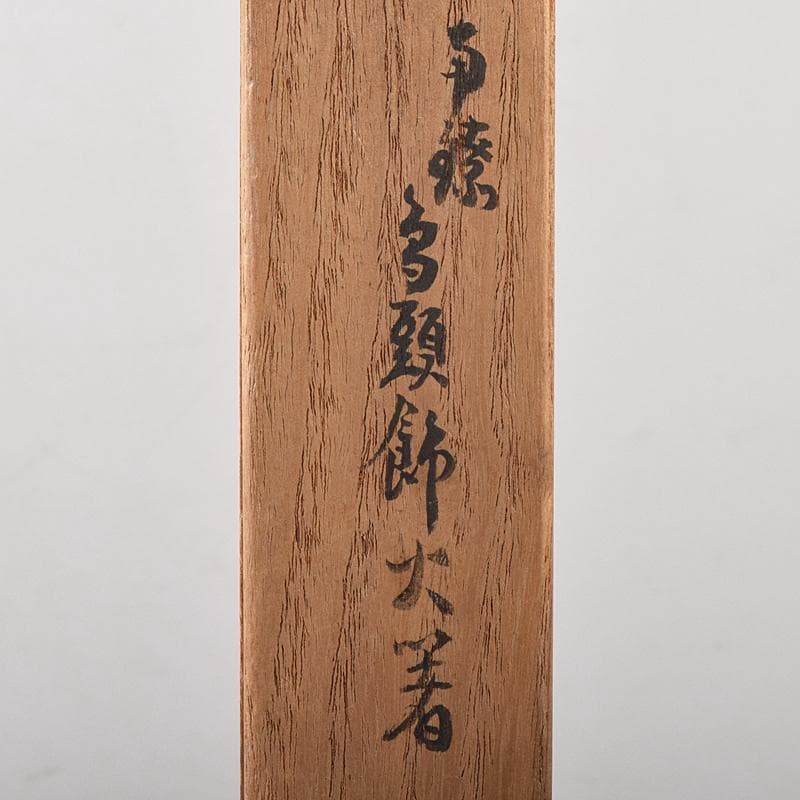 南鐐
鳥頭飾火箸